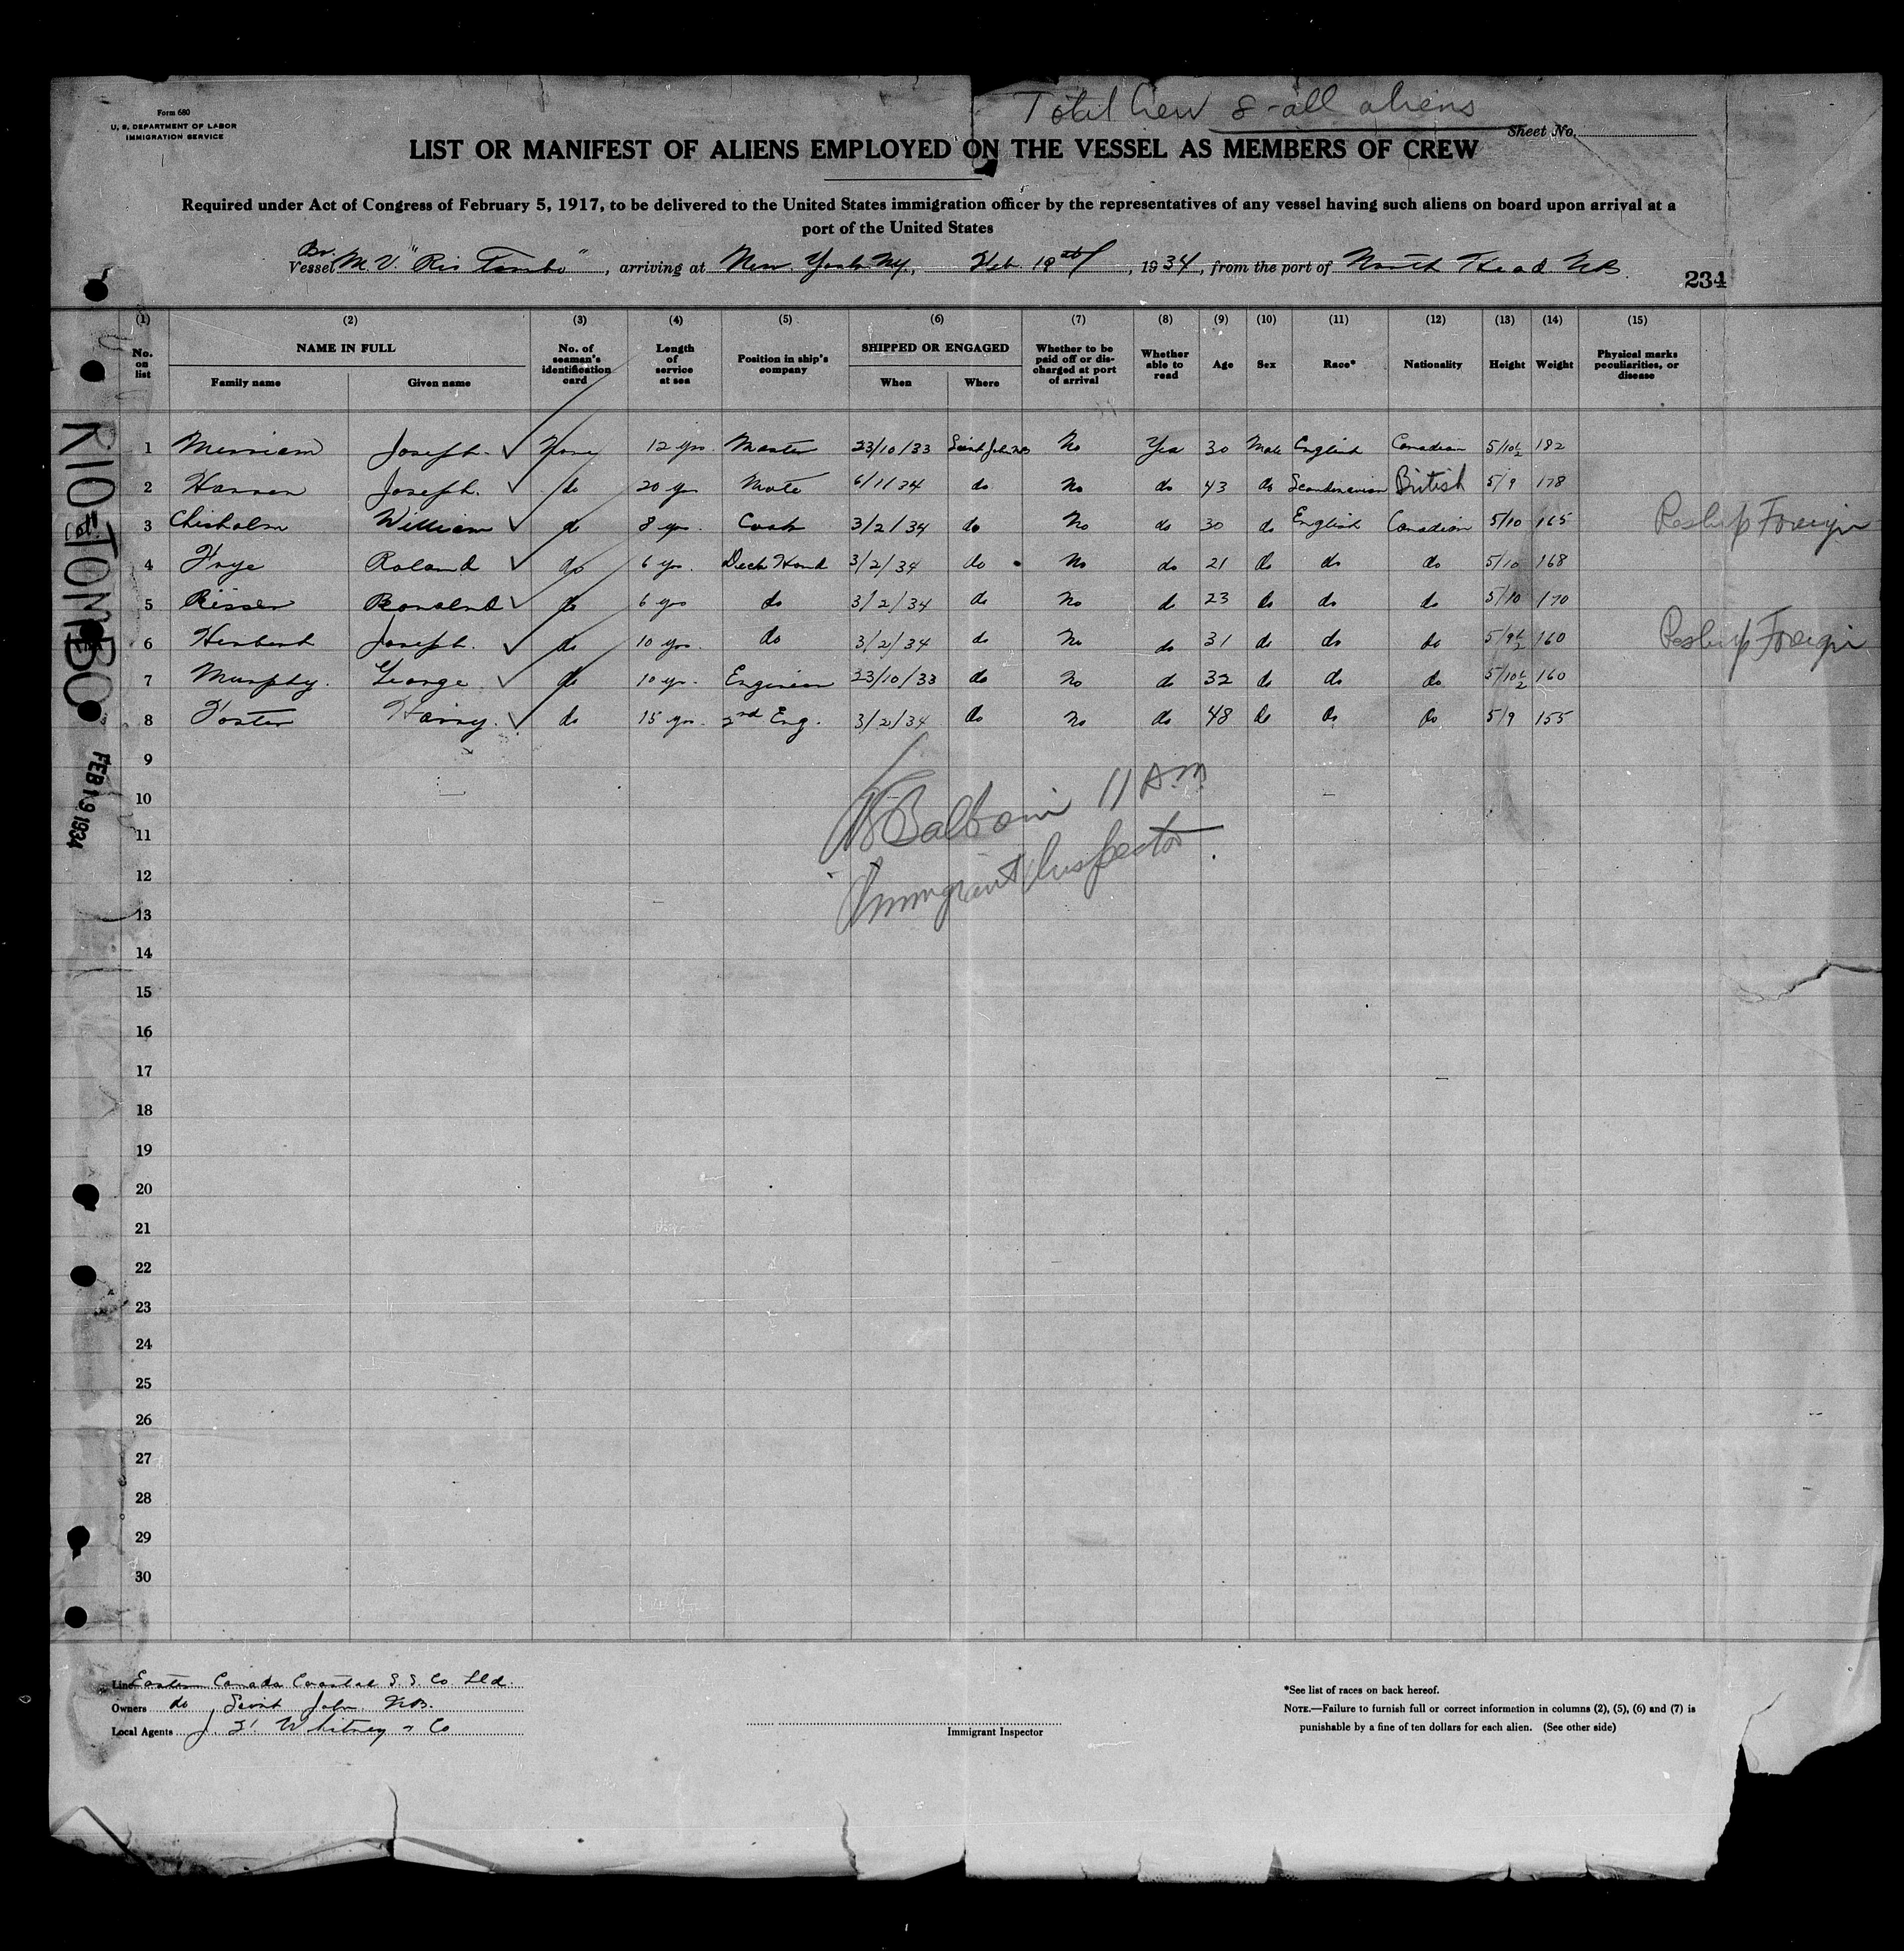 Total Crew 8 - all aliens
Form 680
U. S. DEPARTMENT OF LABOR
IMMIGRATION SERVICE
Sheet No.
LIST OR MANIFEST OF ALIENS EMPLOYED ON THE VESSEL AS MEMBERS OF CREW
Required under Act of Congress of February 5, 1917, to be delivered to the United States immigration officer by the representatives of any vessel having such aliens on board upon arrival at a
port of the United States
Br.
Vessel M.V. "Rio Tombo", arriving at New York NY., Feb. 19th, 1934, from the port of North Head NB.
234
(1) (2) (3) (4) (5) (6) (7) (8) (9) (10) (11) (12) (13) (14) (15)
No. on list NAME IN FULL Family name Given name No. of seaman's identification card Length of service at sea Position in ship's company SHIPPED OR ENGAGED When Where Whether to be paid off or discharged at port of arrival Whether able to read Age Sex Race* Nationality Height Weight Physical marks peculiarities, or disease
1 Merriam Joseph. None 12 yrs. Master 23/10/33 Saint John NB No Yes 30 Male English Canadian 5/10½ 182
2 Hansen Joseph. do 20 yrs Mate 6/1/34 do No do 43 do Scandinavian British 5/9 178
3 Chisholm William do 8 yrs. Cook 3/2/34 do No do 30 do English Canadian 5/10 165 Reship Foreign
4 Frye Roland do 6 yrs. Deck Hand 3/2/34 do No do 21 do do do 5/10 168
5 Risser do 6 yrs do 3/2/34 do No do 23 do do do 5/10 170
6 Herbert Joseph. do 10 yrs. do 3/2/34 do No do 31 do do do 5/9½ 160 Reship Foreign
7 Murphy. George do 10 yrs. Engineer 23/10/33 do No do 32 do do do 5/10½ 160
8 Foster Harry. do 15 yrs. 2nd Eng. 3/2/34 do No do 48 do do do 5/9 155
9
10
11
12
13
14
15
16
17
18
19
20
21
22
23
24
25
26
27
28
29
30
11 AM
Immigrant Inspector
RIO TOMBO
FEB 19 1934
Line Eastern Canada Coastal S.S. Co Ltd.
Owners do Saint John NB.
Local Agents J F Whitney & Co
Immigrant Inspector
*See list of races on back hereof.
NOTE.—Failure to furnish full or correct information in columns (2), (5), (6) and (7) is
punishable by a fine of ten dollars for each alien. (See other side)